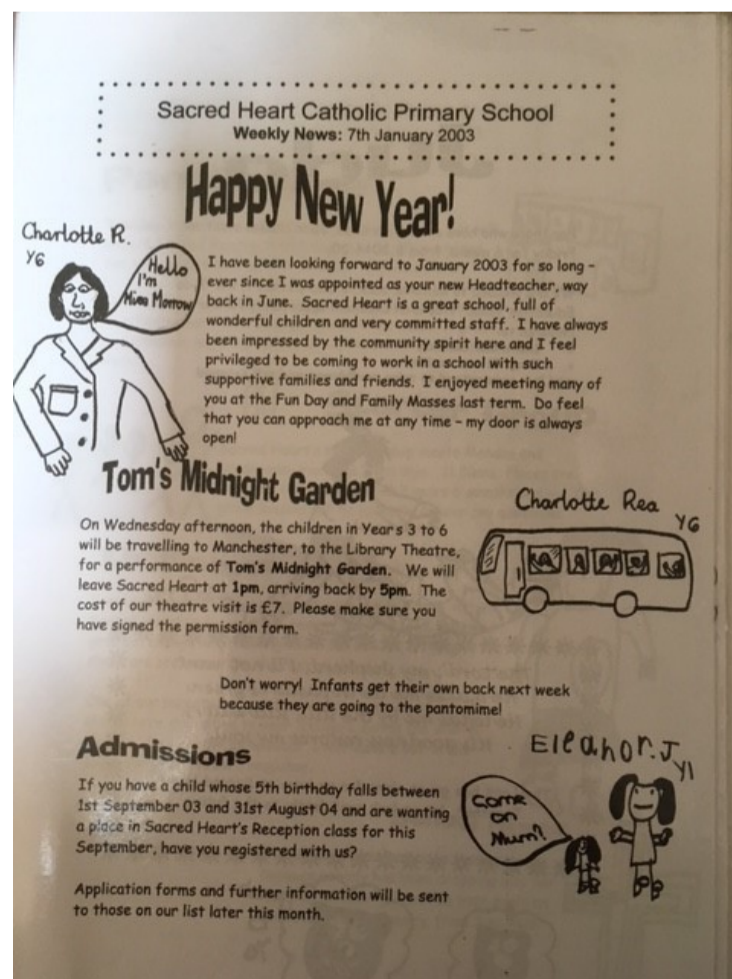 Sacred Heart Catholic Primary School
Weekly News: 7th January 2003
Happy New Year!
Charlotte R.
Y6
Hello
I'm
Miss Morrow
I have been looking forward to January 2003 for so long -
ever since I was appointed as your new Headteacher, way
back in June. Sacred Heart is a great school, full of
wonderful children and very committed staff. I have always
been impressed by the community spirit here and I feel
privileged to be coming to work in a school with such
supportive families and friends. I enjoyed meeting many of
you at the Fun Day and Family Masses last term. Do feel
that you can approach me at any time - my door is always
open!
Tom's Midnight Garden
On Wednesday afternoon, the children in Years 3 to 6
will be travelling to Manchester, to the Library Theatre,
for a performance of Tom's Midnight Garden. We will
leave Sacred Heart at 1pm, arriving back by 5pm. The
cost of our theatre visit is £7. Please make sure you
have signed the permission form.
Charlotte Rea
Y6
Don't worry! Infants get their own back next week
because they are going to the pantomime!
Admissions
If you have a child whose 5th birthday falls between
1st September 03 and 31st August 04 and are wanting
a place in Sacred Heart's Reception class for this
September, have you registered with us?
Application forms and further information will be sent
to those on our list later this month.
Eleanor.J
Y1
Come
on
Mum!